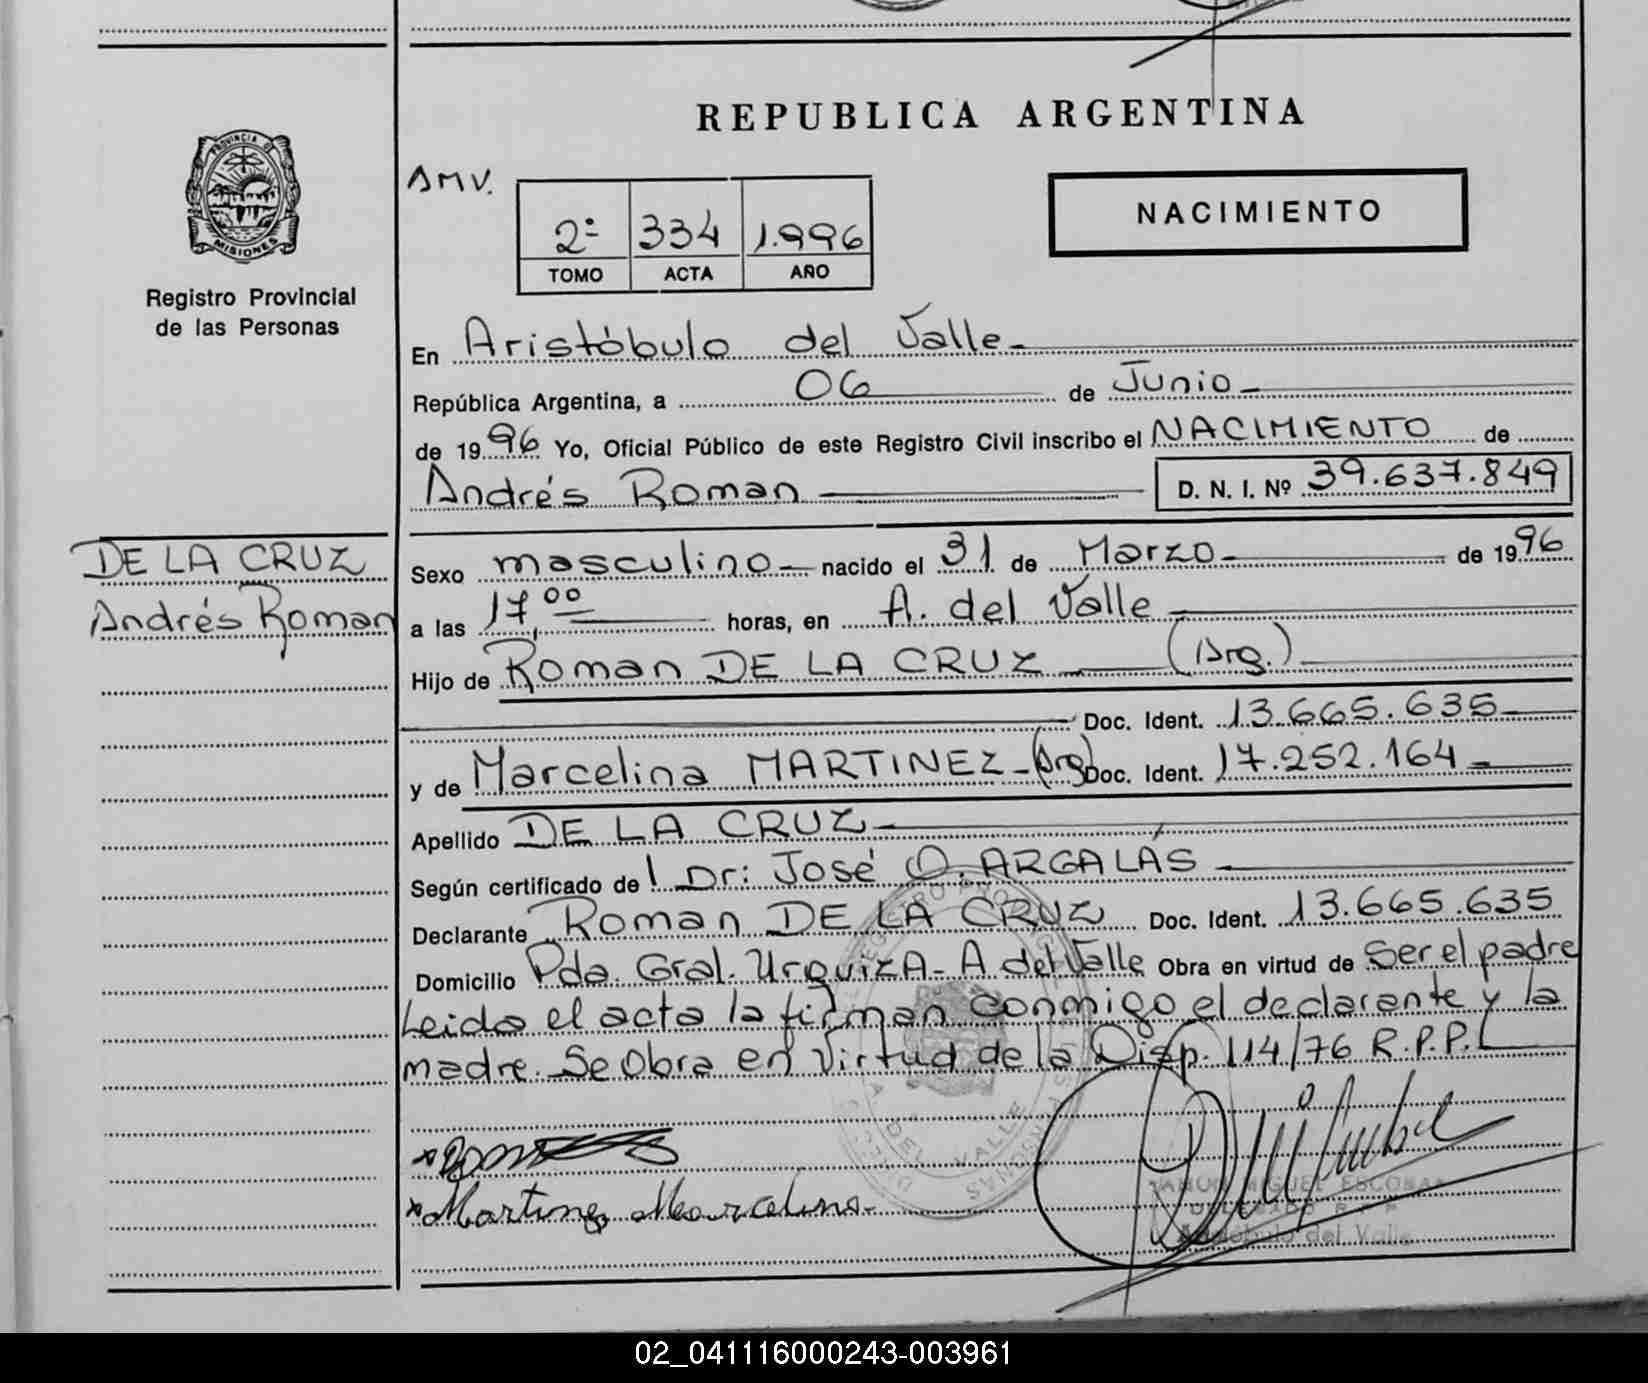 REPUBLICA ARGENTINA
PROVINCIA DE
MISIONES
Registro Provincial
de las Personas
AMV.
2º 334 1.996
TOMO ACTA AÑO
NACIMIENTO
En Aristóbulo del Valle
República Argentina, a 06 de Junio
de 1996 Yo, Oficial Público de este Registro Civil inscribo el NACIMIENTO de
Andrés Roman D. N. I. Nº 39.637.849
DE LA CRUZ
Andrés Roman
Sexo masculino nacido el 31 de Marzo de 1996
a las 17,00 horas, en A. del Valle
Hijo de Roman DE LA CRUZ (Arg.)
Doc. Ident. 13.665.635
y de Marcelina MARTINEZ (Arg) Doc. Ident. 17.252.164
Apellido DE LA CRUZ
Según certificado del Dr: José O. ARGALÁS
Declarante Roman DE LA CRUZ Doc. Ident. 13.665.635
Domicilio Pda. Gral. Urquiza - A del Valle Obra en virtud de Ser el padre
Leida el acta la firman conmigo el declarante y la
madre. Se Obra en Virtud de la Disp. 114/76 R.P.P.
Martinez Marcelina
MIGUEL ESCOBAR
DELEGADO R.P.P.
Aristóbulo del Valle
02_041116000243-003961